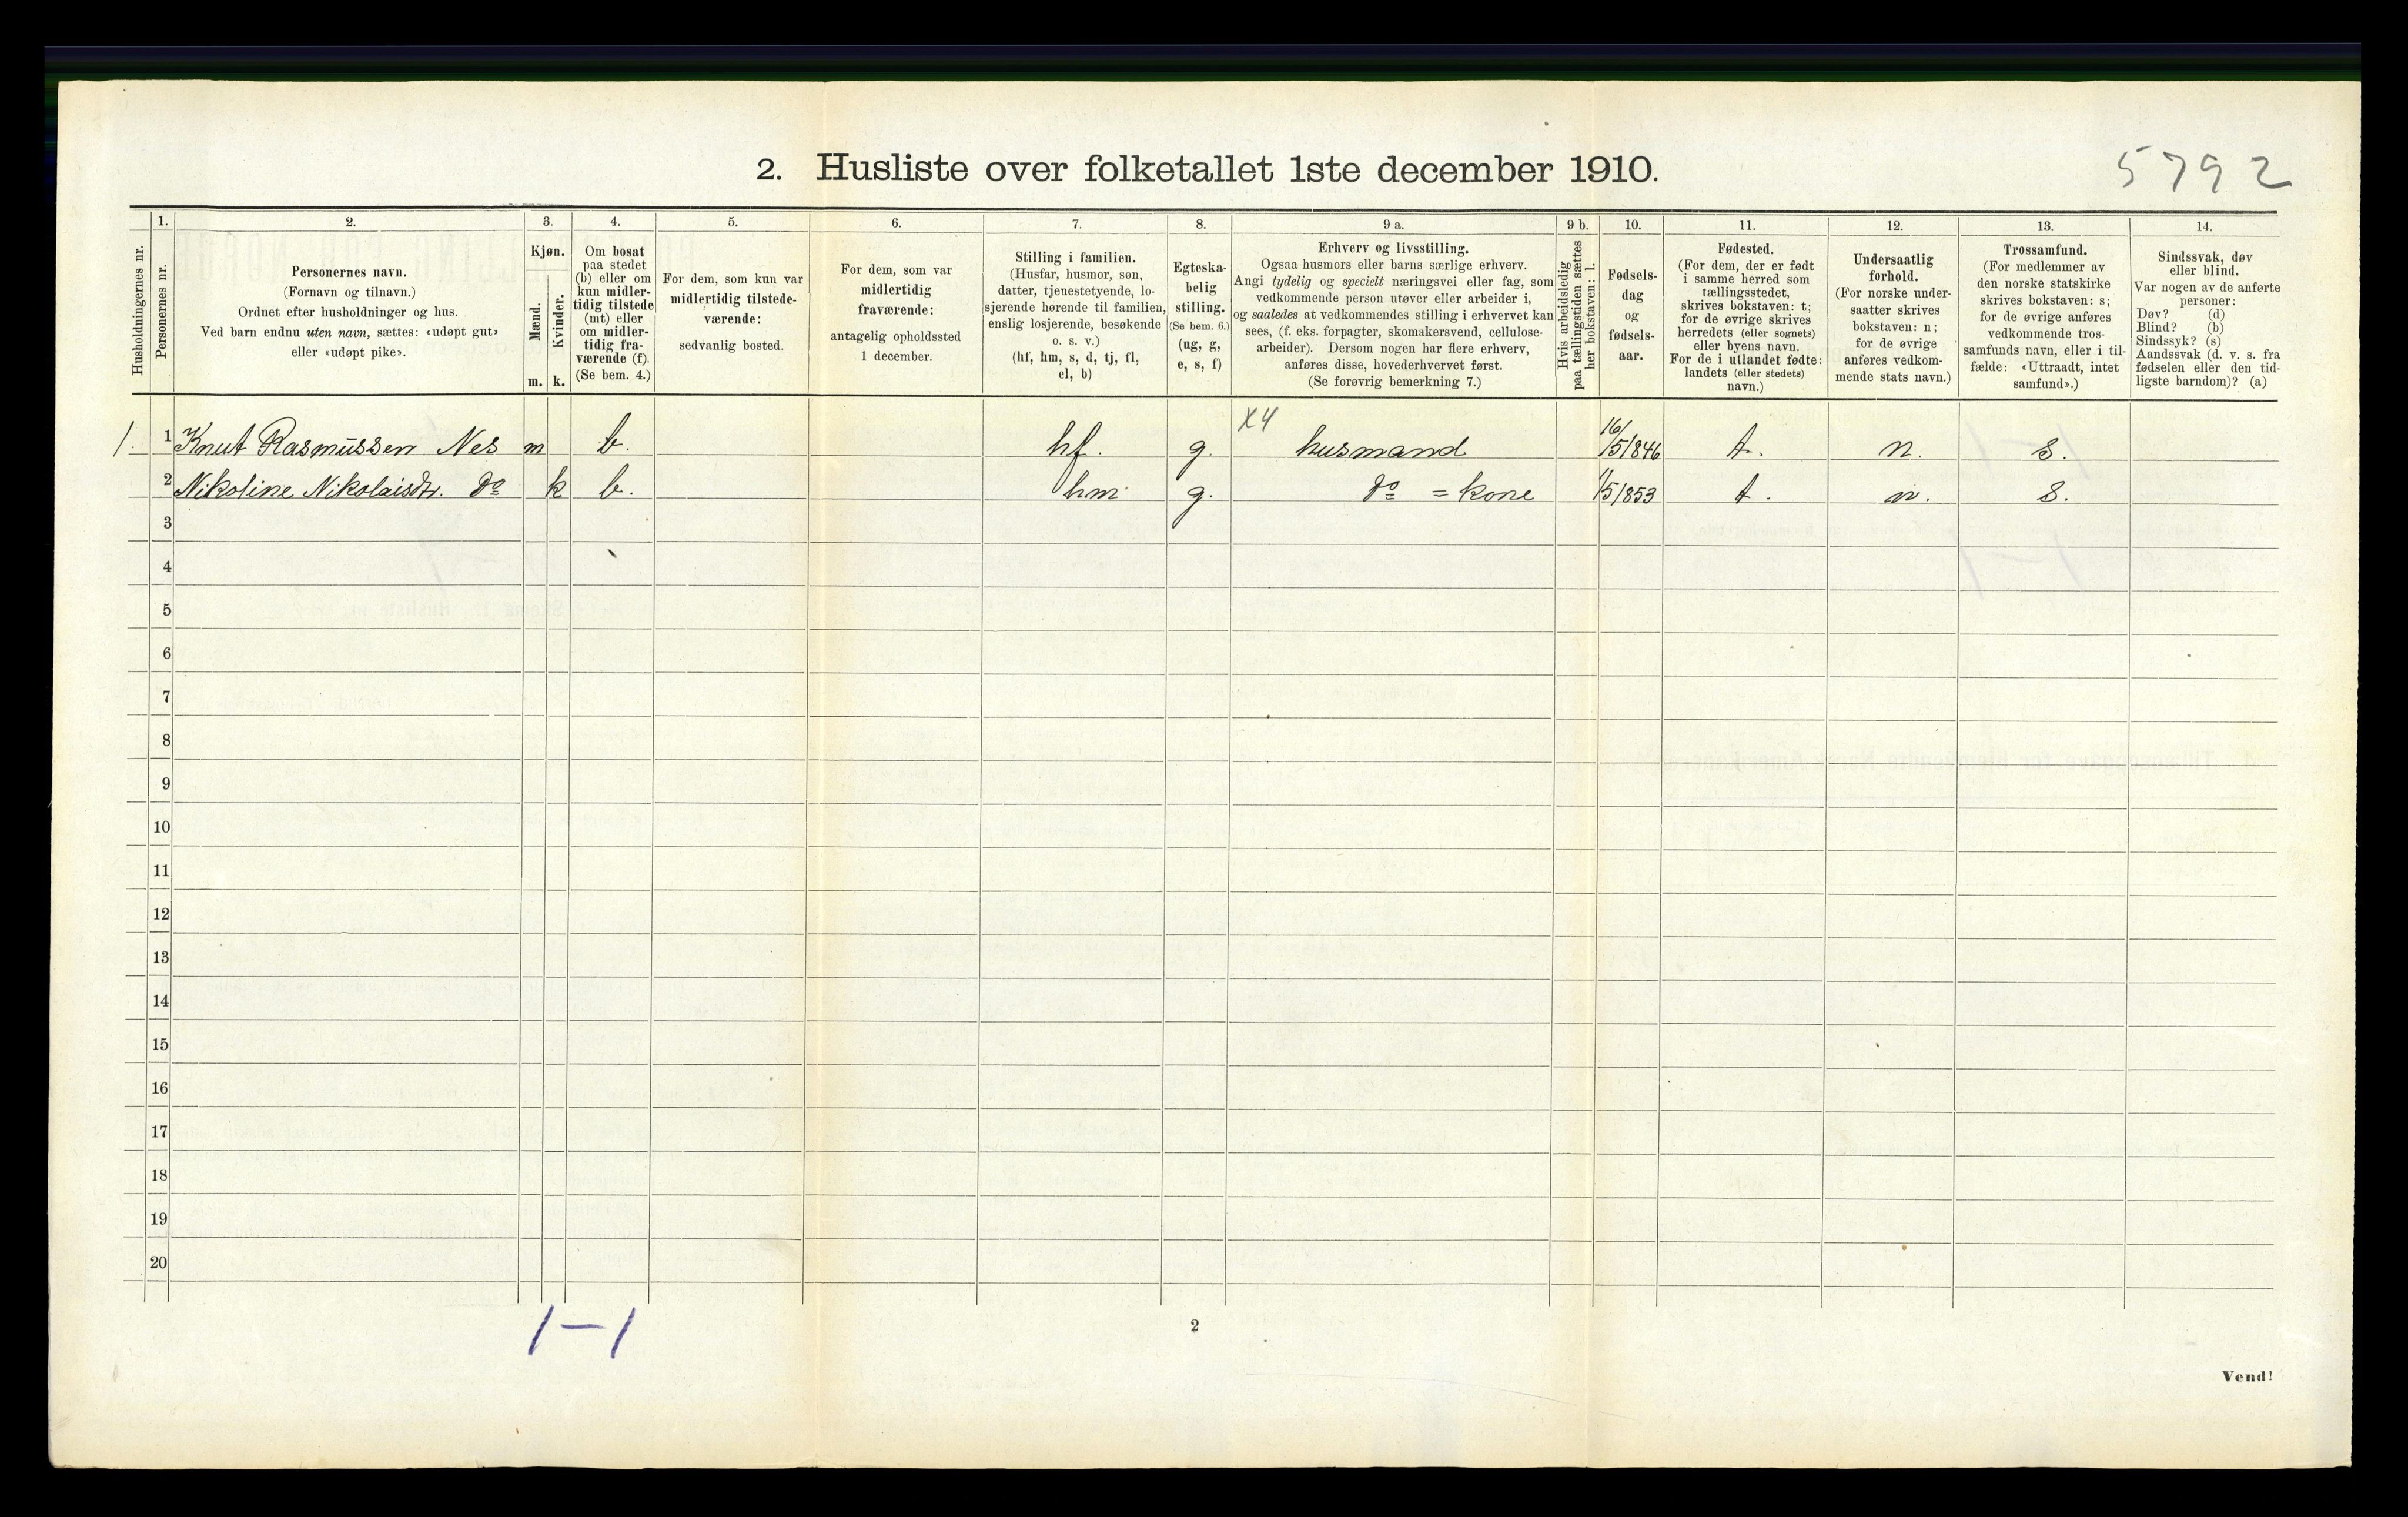 2. Husliste over folketallet 1ste december 1910.
5792
Husholdningernes nr.
1.
Personernes nr.
2.
Personernes navn.
(Fornavn og tilnavn.)
Ordnet efter husholdninger og hus.
Ved barn endnu uten navn, sættes: «udøpt gut»
eller «udøpt pike».
3.
Kjøn.
Mænd.
Kvinder.
m. k.
4.
Om bosat
paa stedet
(b) eller om
kun midler-
tidig tilstede
(mt) eller
om midler-
tidig fra-
værende (f).
(Se bem. 4.)
5.
For dem, som kun var
midlertidig tilstede-
værende:
sedvanlig bosted.
6.
For dem, som var
midlertidig
fraværende:
antagelig opholdssted
1 december.
7.
Stilling i familien.
(Husfar, husmor, søn,
datter, tjenestetyende, lo-
sjerende hørende til familien,
enslig losjerende, besøkende
o. s. v.)
(hf, hm, s, d, tj, fl,
el, b)
8.
Egteska-
belig
stilling.
(Se bem. 6.)
(ug, g,
e, s, f)
9 a.
Erhverv og livsstilling.
Ogsaa husmors eller barns særlige erhverv.
Angi tydelig og specielt næringsvei eller fag, som
vedkommende person utøver eller arbeider i,
og saaledes at vedkommendes stilling i erhvervet kan
sees, (f. eks. forpagter, skomakersvend, cellulose-
arbeider). Dersom nogen har flere erhverv,
anføres disse, hovederhvervet først.
(Se forøvrig bemerkning 7.)
9 b.
Hvis arbeidsledig
paa tællingstiden sættes
her bokstaven: l.
10.
Fødsels-
dag
og
fødsels-
aar.
11.
Fødested.
(For dem, der er født
i samme herred som
tællingsstedet,
skrives bokstaven: t;
for de øvrige skrives
herredets (eller sognets)
eller byens navn.
For de i utlandet fødte:
landets (eller stedets)
navn.)
12.
Undersaatlig
forhold.
(For norske under-
saatter skrives
bokstaven: n;
for de øvrige
anføres vedkom-
mende stats navn.)
13.
Trossamfund.
(For medlemmer av
den norske statskirke
skrives bokstaven: s;
for de øvrige anføres
vedkommende tros-
samfunds navn, eller i til-
fælde: «Uttraadt, intet
samfund».)
14.
Sindssvak, døv
eller blind.
Var nogen av de anførte
personer:
Døv? (d)
Blind? (b)
Sindssyk? (s)
Aandssvak (d. v. s. fra
fødselen eller den tid-
ligste barndom)? (a)
X4
1. 1 Knut Rasmussen Nes m b. hf. g. husmand 16/5/846 t. n. s.
2 Nikoline Nikolaisdtr. do k b. hm g. do = kone 1/5/853 t. n. s.
3
4
5
6
7
8
9
10
11
12
13
14
15
16
17
18
19
20
1-1
2
Vend!